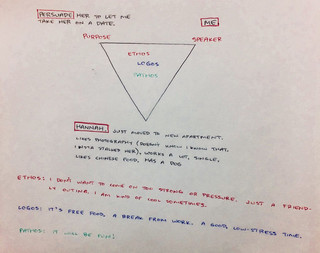 PERSUADE HER TO LET ME
TAKE HER ON A DATE.
ME
PURPOSE
SPEAKER
ETHOS
LOGOS
PATHOS
HANNAH. JUST MOVED TO NEW APARTMENT.
LIKES PHOTOGRAPHY (DOESN'T KNOW I KNOW THAT,
I INSTA STALKED HER), WORKS A LOT, SINGLE,
LIKES CHINESE FOOD, HAS A DOG
ETHOS: I DON'T WANT TO COME ON TOO STRONG OR PRESSURE. JUST A FRIEND-
LY OUTING. I AM KIND OF COOL SOMETIMES.
LOGOS: IT'S FREE FOOD, A BREAK FROM WORK. A GOOD, LOW-STRESS TIME.
PATHOS: IT WILL BE FUN!